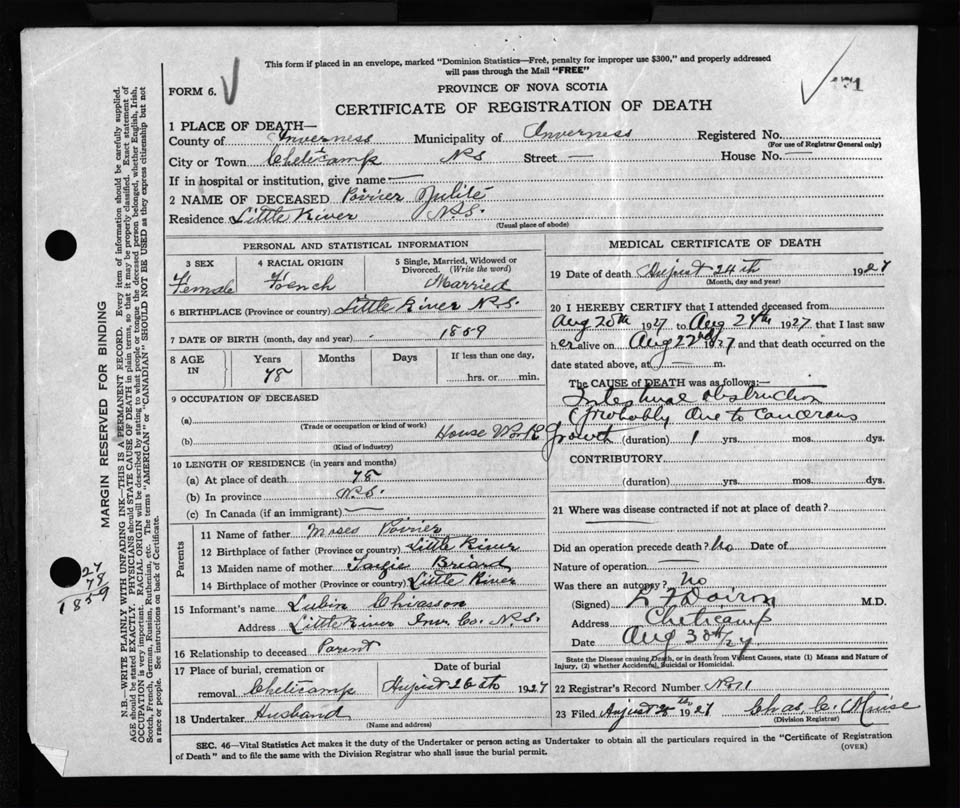 This form if placed in an envelope, marked "Dominion Statistics—Free, penalty for improper use $300," and properly addressed
will pass through the Mail "FREE"
FORM 6.
PROVINCE OF NOVA SCOTIA
CERTIFICATE OF REGISTRATION OF DEATH
1 PLACE OF DEATH—
County of Inverness Municipality of Inverness Registered No.
(For use of Registrar General only)
City or Town Cheticamp N.S. Street — House No. —
If in hospital or institution, give name —
2 NAME OF DECEASED Poirier
Residence Little River N.S.
(Usual place of abode)
PERSONAL AND STATISTICAL INFORMATION
3 SEX 4 RACIAL ORIGIN 5 Single, Married, Widowed or
Divorced. (Write the word)
Female French Married
6 BIRTHPLACE (Province or country) Little River N.S.
7 DATE OF BIRTH (month, day and year) - 1859
8 AGE IN Years Months Days If less than one day,
78 hrs. or min.
9 OCCUPATION OF DECEASED
(a)
(Trade or occupation or kind of work)
(b) House Work
(Kind of industry)
10 LENGTH OF RESIDENCE (in years and months)
(a) At place of death 78
(b) In province N.S.
(c) In Canada (if an immigrant) —
Parents
11 Name of father Moses Poirier
12 Birthplace of father (Province or country) Little River
13 Maiden name of mother Briand
14 Birthplace of mother (Province or country) Little River
15 Informant's name Lubin Chiasson
Address Little River Inv. Co. N.S.
16 Relationship to deceased Parent
17 Place of burial, cremation or Date of burial
removal Cheticamp August 26th 1927
18 Undertaker Husband
(Name and address)
MEDICAL CERTIFICATE OF DEATH
19 Date of death August 24th 1927
(Month, day and year)
20 I HEREBY CERTIFY that I attended deceased from
Aug 20th 1927 to Aug 24th 1927 that I last saw
her alive on Aug 22nd 1927 and that death occurred on the
date stated above, at m.
The CAUSE of DEATH was as follows:—
Intestinal obstruction
(probably due to cancerous
Growth (duration) 1 yrs. mos. dys.
CONTRIBUTORY
(duration) yrs. mos. dys.
21 Where was disease contracted if not at place of death?
Did an operation precede death? No Date of
Nature of operation —
Was there an autopsy? No
(Signed) M.D.
Address Cheticamp
Date Aug 30th/27
State the Disease causing Death, or in death from Violent Causes, state (1) Means and Nature of
Injury, (2) whether Accidental, Suicidal or Homicidal.
22 Registrar's Record Number No 11
23 Filed August 1927 Chas. C.
(Division Registrar)
SEC. 46—Vital Statistics Act makes it the duty of the Undertaker or person acting as Undertaker to obtain all the particulars required in the "Certificate of Registration
of Death" and to file the same with the Division Registrar who shall issue the burial permit.
(OVER)
MARGIN RESERVED FOR BINDING
N.B.—WRITE PLAINLY WITH UNFADING INK—THIS IS A PERMANENT RECORD. Every item of information should be carefully supplied.
AGE should be stated EXACTLY. PHYSICIANS should STATE CAUSE OF DEATH in plain terms, so that it may be properly classified. Exact statement of
OCCUPATION is very important. RACIAL ORIGIN will be described by stating to what people or tongue the deceased person belonged, whether English, Irish,
Scotch, French, German, Russian, Ruthenian, etc. The terms "AMERICAN" or "CANADIAN" SHOULD NOT BE USED as they express citizenship but not
a race or people. See instructions on back of Certificate.
27
78
1859